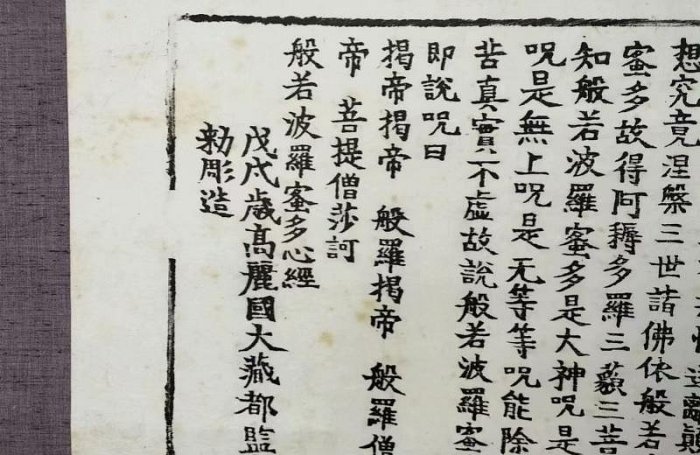 遠離顛
想究竟涅槃三世諸佛依般若
蜜多故得阿耨多羅三藐三菩
知般若波羅蜜多是大神呪是
呪是無上呪是无等等呪能除
苦真實不虛故說般若波羅蜜
即說呪曰
揭帝揭帝 般羅揭帝 般羅僧
帝 菩提僧莎訶
般若波羅蜜多心經
戊戌歲高麗國大藏都監
勅彫造